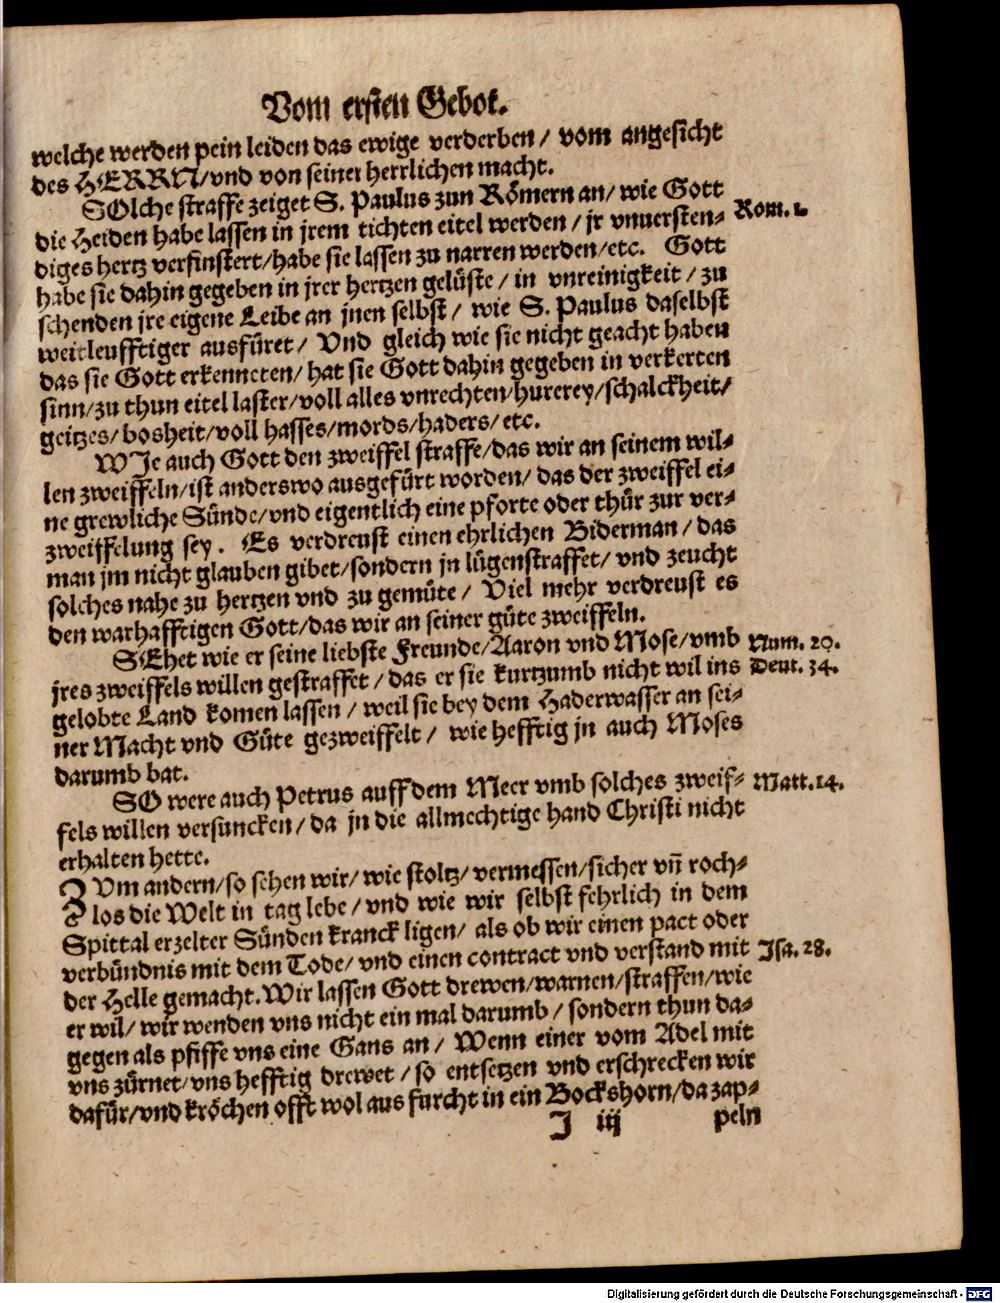 Vom ersten Gebot.
welche werden pein leiden das ewige verderben / vom angesicht
des HERRN/vnd von seiner herrlichen macht.
SOlche straffe zeiget S. Paulus zun Römern an/ wie Gott
die Heiden habe lassen in jrem tichten eitel werden / jr vnuersten⸗ Rom. 1.
diges hertz verfinstert/habe sie lassen zu narren werden/etc. Gott
habe sie dahin gegeben in jrer hertzen gelüste / in vnreinigkeit / zu
schenden jre eigene Leibe an jnen selbst / wie S. Paulus daselbst
weitleufftiger ausfüret / Vnd gleich wie sie nicht geacht haben
das sie Gott erkenneten/ hat sie Gott dahin gegeben in verkerten
sinn/zu thun eitel laster/voll alles vnrechten/hurerey/schalckheit/
geitzes/bosheit/voll hasses/mords/haders/etc.
WJe auch Gott den zweiffel straffe/das wir an seinem wil⸗
len zweiffeln/ist anderswo ausgefürt worden/ das der zweiffel ei⸗
ne grewliche Sünde/vnd eigentlich eine pforte oder thür zur ver⸗
zweiffelung sey. Es verdreust einen ehrlichen Biderman / das
man jm nicht glauben gibet/sondern jn lügenstraffet/ vnd zeucht
solches nahe zu hertzen vnd zu gemüte / Viel mehr verdreust es
den warhafftigen Gott/das wir an seiner güte zweiffeln.
SEhet wie er seine liebste Freunde/Aaron vnd Mose/vmb Num. 20.
jres zweiffels willen gestraffet / das er sie kurtzumb nicht wil ins Deut. 34.
gelobte Land komen lassen / weil sie bey dem Haderwasser an sei⸗
ner Macht vnd Güte gezweiffelt / wie hefftig jn auch Moses
darumb bat.
SO were auch Petrus auff dem Meer vmb solches zweif⸗ Matt. 14.
fels willen versuncken/ da jn die allmechtige hand Christi nicht
erhalten hette.
ZVm andern/so sehen wir/ wie stoltz/ vermessen/sicher vn̄ roch⸗
los die Welt in tag lebe / vnd wie wir selbst fehrlich in dem
Spittal erzelter Sünden kranck ligen/ als ob wir einen pact oder
verbündnis mit dem Tode/ vnd einen contract vnd verstand mit Jsa. 28.
der Helle gemacht. Wir lassen Gott drewen/warnen/straffen/wie
er wil/ wir wenden vns nicht ein mal darumb / sondern thun da⸗
gegen als pfiffe vns eine Gans an / Wenn einer vom Adel mit
vns zürnet/vns hefftig drewet / so entsetzen vnd erschrecken wir
dafür/vnd kröchen offt wol aus furcht in ein Bockshorn/da zap⸗
J iij peln
Digitalisierung gefördert durch die Deutsche Forschungsgemeinschaft - DFG